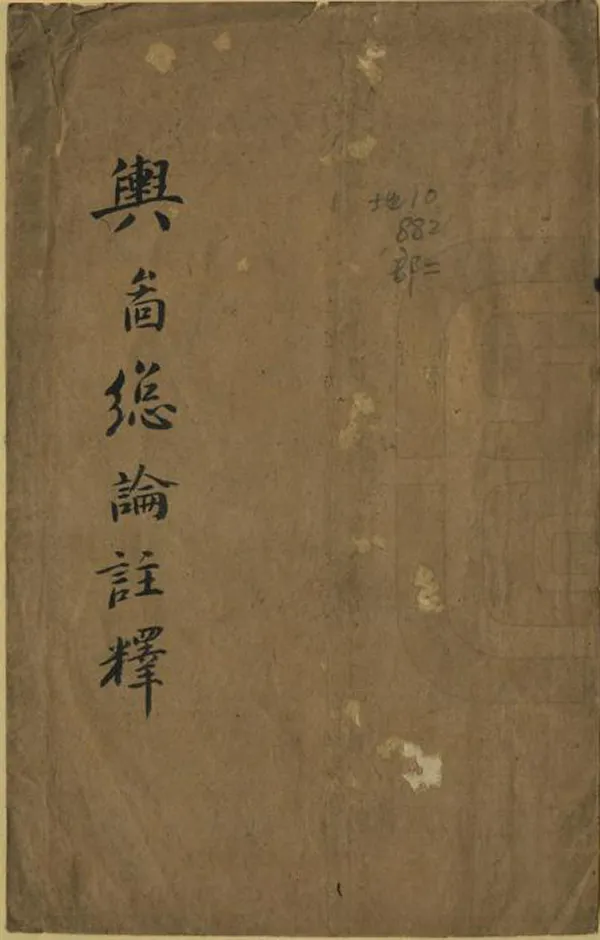 輿啚緫論註釋
地10
882
部二